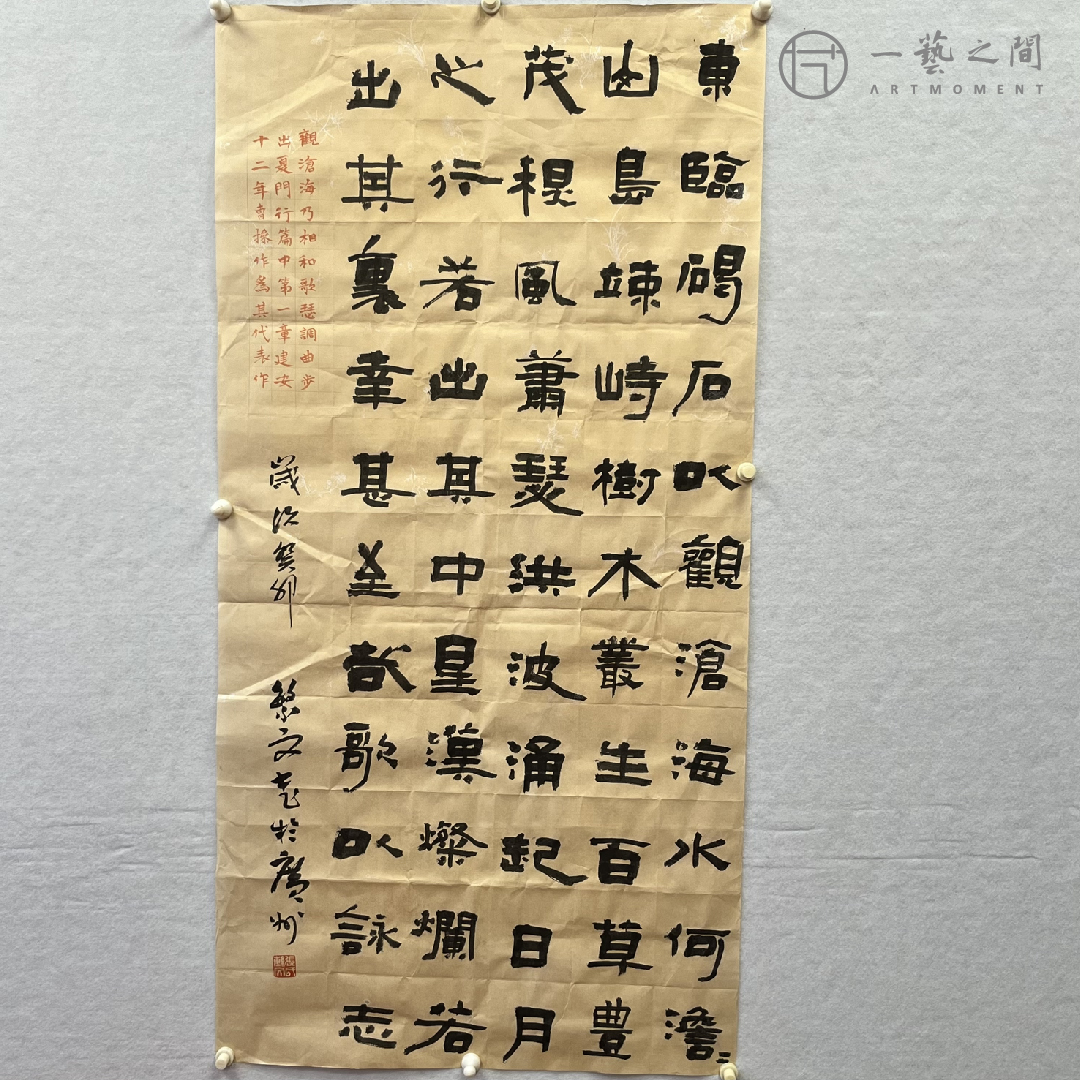 一藝之間
ARTMOMENT
東臨碣石以觀滄海水何澹〻
山島竦峙樹木叢生百草豐
茂秋風蕭瑟洪波涌起日月
之行若出其中星漢燦爛若
出其裏幸甚至哉歌以詠志
觀滄海乃相和歌瑟調曲步
出夏門行篇中第一章建安
十二年曹操作爲其代表作
歲次癸卯 繁文書於廣州